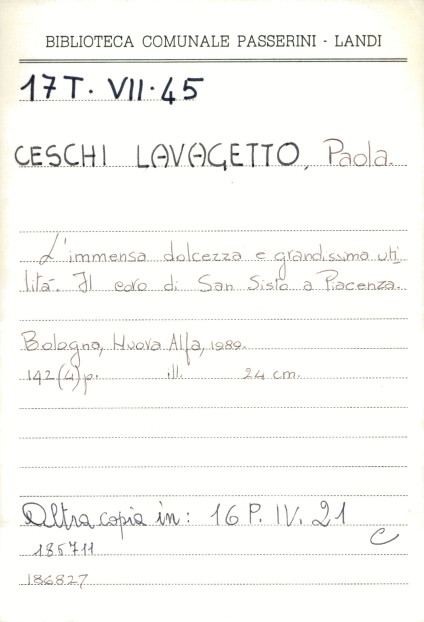 BIBLIOTECA COMUNALE PASSERINI - LANDI
17 T. VII. 45
CESCHI LAVAGETTO, Paola.
L'immensa dolcezza e grandissima uti
lità. Il coro di San Sisto a Piacenza.
Bologna, Nuova Alfa, 1989.
142 (4) p. ill. 24 cm.
Altra copia in: 16 P. IV. 21
C
185711
186827